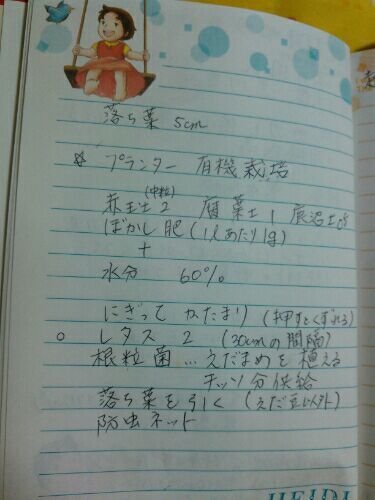 落ち葉 5cm
☆ プランター 有機栽培
(中粒)
赤玉土 2 腐葉土 1 鹿沼土 0.5
ぼかし肥 (1ℓあたり1g)
+
水分 60%
にぎって かたまり (押すとくずれる)
○ レタス 2 (30cmの間隔)
根粒菌…えだまめを植える
チッソ分供給
落ち葉を引く (えだ豆以外)
防虫ネット
HEIDI